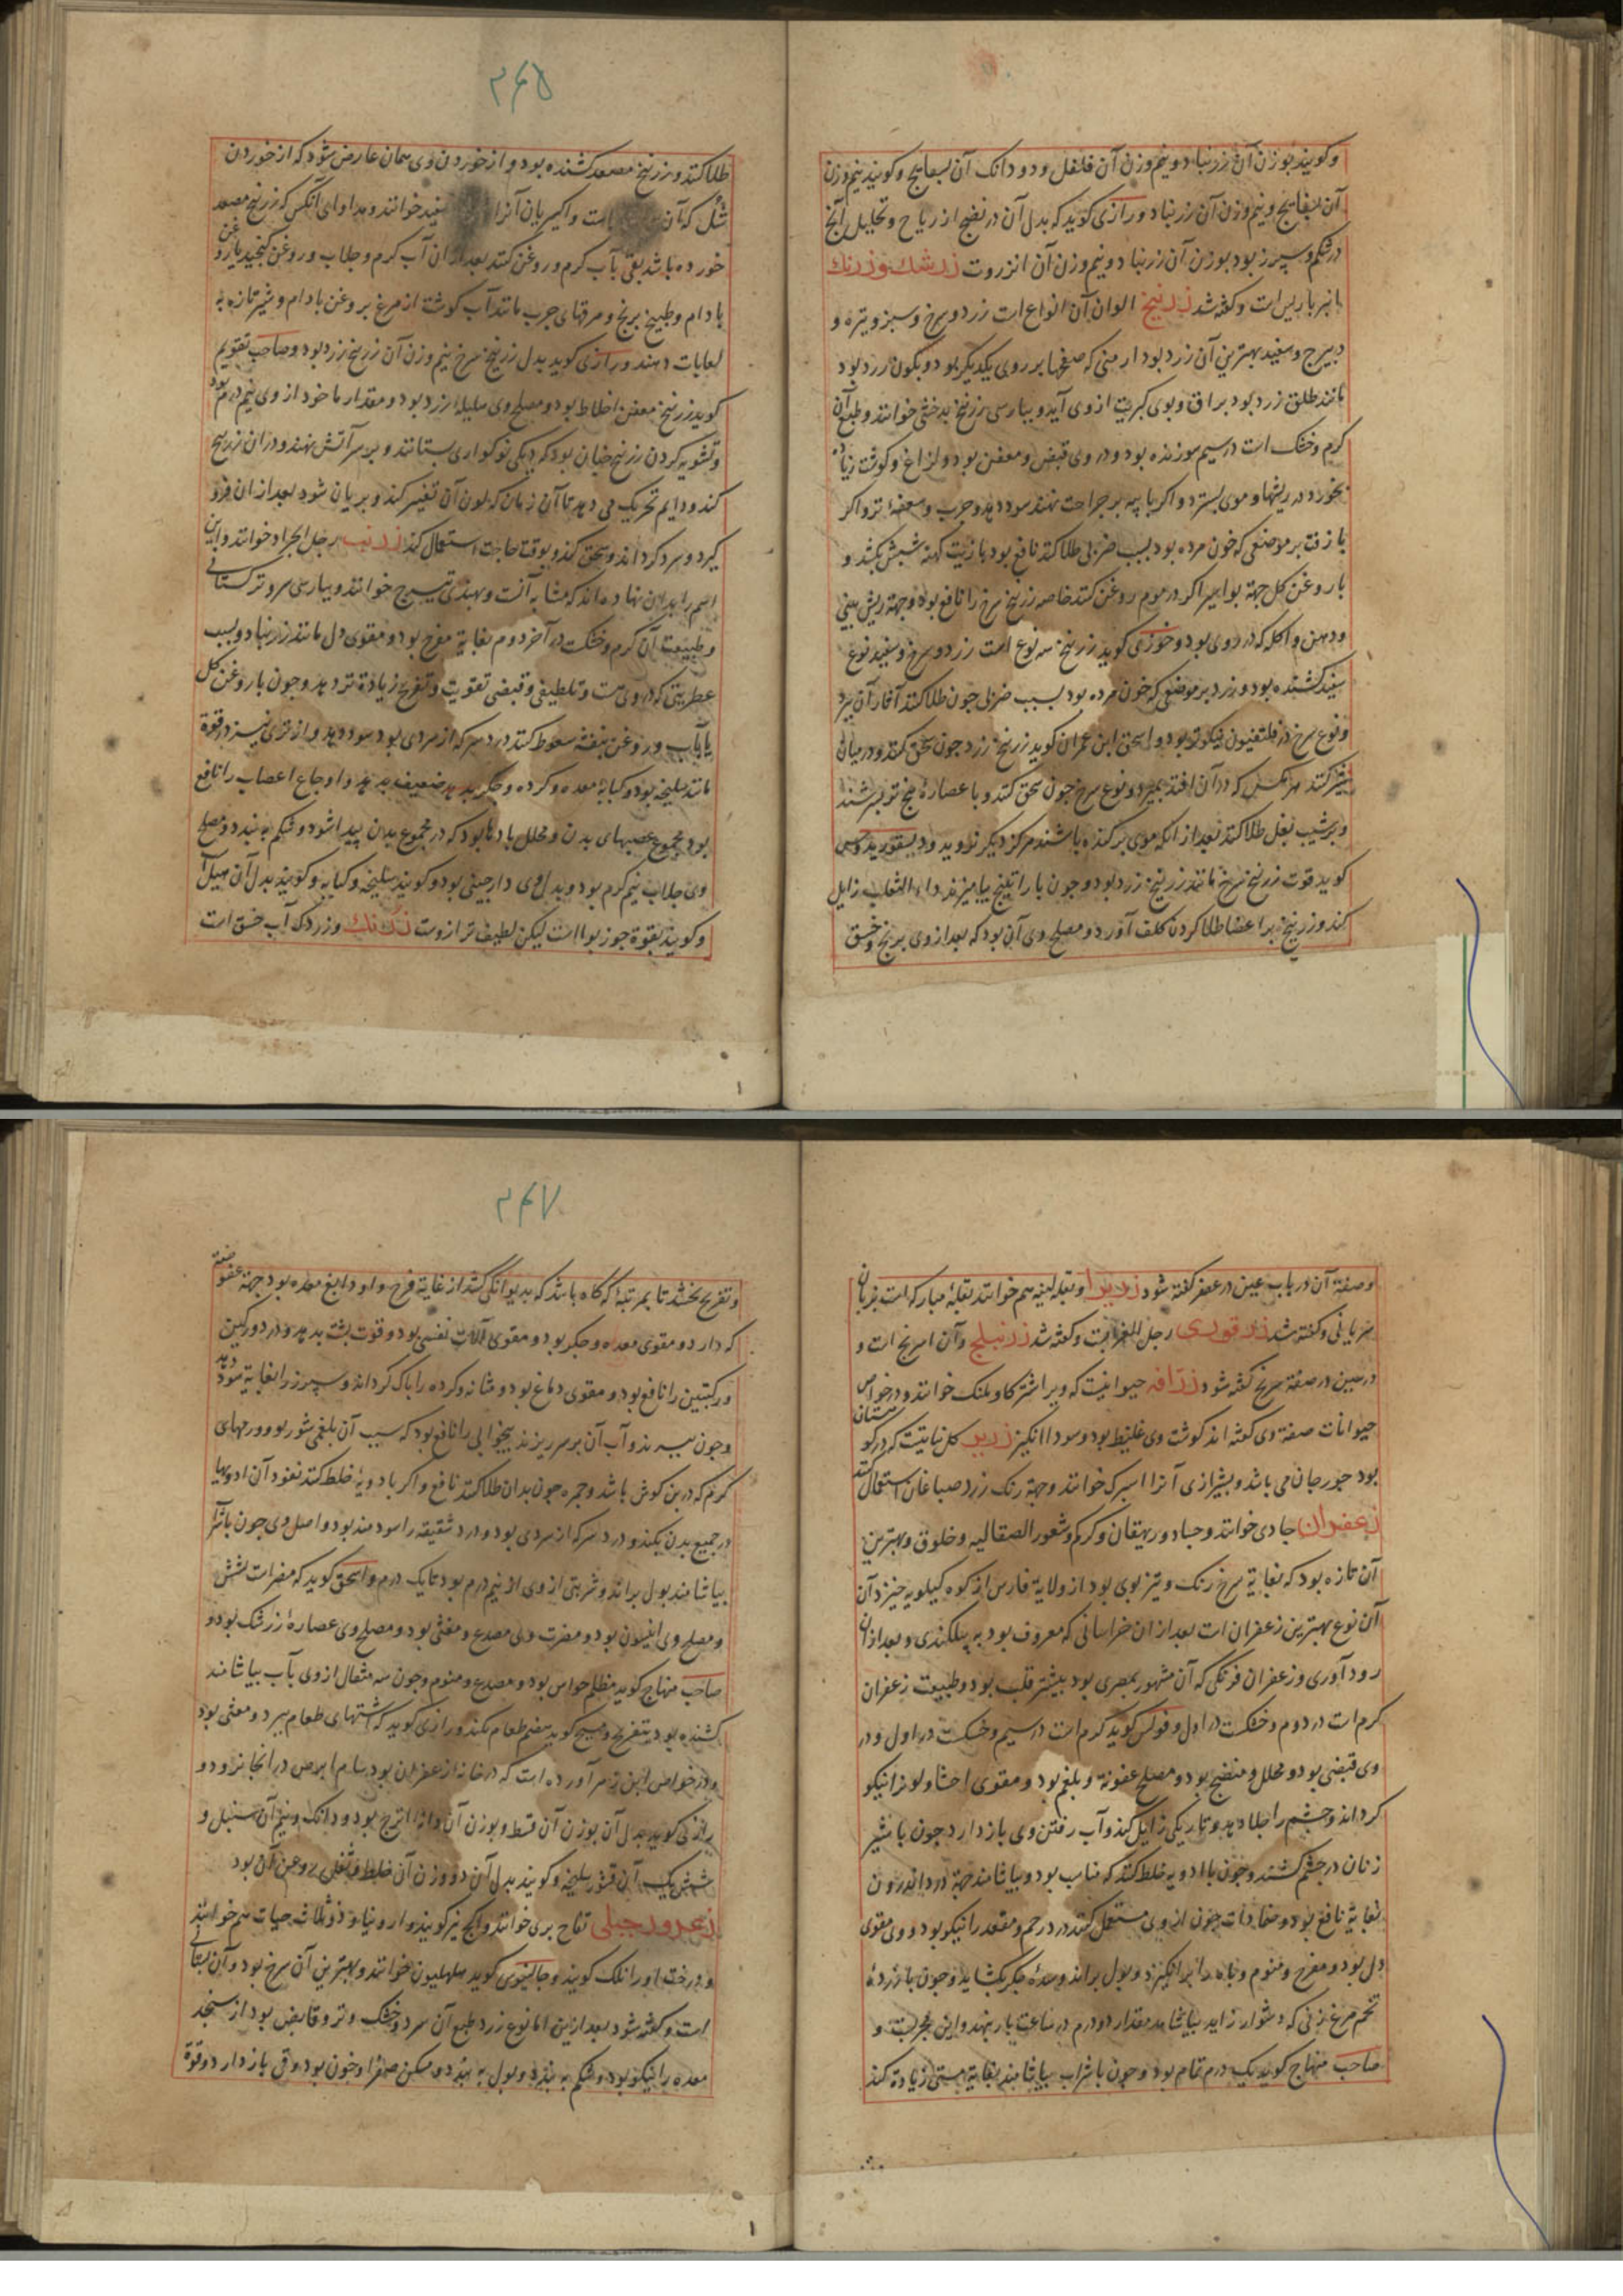 وکویند بوزن آن زرنباد و نیم وزن آن فلفل و دو دانک آن بسفایج وکویند نیم وزن
آن بسفایج و نیم وزن آن زرنباد و رازی کوید که بدل آن در نضج از ریاح و تحلیل آنچ
در شکم و سپرز بود بوزن آن زرنباد و نیم وزن آن انزروت زرشک وزرنک
انبرباریس است وکفته شد زرنیخ الوان آن انواع است زرد و سرخ و سبز و تیره و
وسفید بهترین آن زرد بود ارمنی که صفحها بر روی یکدیکر بود و بکون زرد بود
مانند طلق زرد بود براق و بوی کبریت از وی آید و بپارسی زرنیخ بدخشی خوانند و طبع آن
کرم و خشک است در سیم سوزنده بود و در وی قبض و معفن بود و لزاع و کوشت زیاده
بخورد و در ریشها و موی بسترد و اکر با پیه بر جراحت نهند سود دهد و جرب و سعفه تر و اکر
با زفت بر موضعی که خون مرده بود بسبب ضربی طلا کنند نافع بود با زیت کهنه شپش بکشد و
با روغن کل جهة بواسیر اکر در موم روغن کنند خاصه زرنیخ سرخ را نافع بود و جهة ریش بینی
و دهن و اکله که در وی بود و خوزی کوید زرنیخ سه نوع است زرد و سرخ و سفید نوع
سفید کشنده بود و زرد بر موضعی که خون مرده بود بسبب ضربی چون طلا کنند آثار آن ببرد
و نوع سرخ در فلتفیون نیکوتر بود و اسحق ابن عمران کوید زرنیخ زرد چون سحق کنند و در میان
شیر کنند هر مکس که در آن افتد بمیرد و نوع سرخ چون سحق کنند و با عصاره بنج تر بسرشند
و بر شیب بغل طلا کنند بعد از آنکه موی برکنده باشند هرکز دیکر نروید و دیسقوریدوس
کوید قوت زرنیخ سرخ مانند زرنیخ زرد بود و چون با راتینج بیامیزند داء الثعلب زایل
کند و زرنیخ بر اعضا طلا کردن کلف آورد و مصلح وی آن بود که بعد از وی برنج و خسق
۲۶۵
طلا کنند و زرنیخ مصعد کشنده بود و از خوردن وی همان عارض شود که از خوردن
شک که آن است و اکسیریان آنرا سفید خوانند و مداوای آنکس که زرنیخ مصعد
خورده باشد بقی بآب کرم و روغن کنند بعد از آن آب کرم و جلاب و روغن کنجید یا روغن
بادام و طبیخ برنج و مرقهای چرب مانند آب کوشت از مرغ بروغن بادام و شیر تازه به
لعابات دهند و رازی کوید بدل زرنیخ سرخ نیم وزن آن زرنیخ زرد بود و صاحب تقویم
کوید زرنیخ معفن اخلاط بود و مصلح وی هلیله زرد بود و مقدار ماخوذ از وی نیم درم بود
و تشویه کردن زرنیخ چنان بود که دیکی نو کواری بستانند و بر سر آتش نهند و در آن زرنیخ
کند و دایم تحریک می دهد تا آن زمان که لون آن تغیر کند و بریان شود بعد از آن فرو
کیرد و سرد کرداند و سحق کند و بوقت حاجت استعمال کند زرنب رجل الجراد خوانند و این
اسم را بدان نهاده اند که مشابه آنست و بهندی خوانند و بپارسی سرو ترکستانی
و طبیعت آن کرم و خشکست در آخر دوم بغایة مفرح بود و مقوی دل مانند زرنباد و بسبب
عطریتی که در وی هست و تلطیفی و قبضی تقویت و تفریح زیادة تر دهد و چون با روغن کل
یا بآب و روغن بنفشه سعوط کنند درد سر که از سردی بود سود دهد و از تری نیز در قوة
مانند سلیخه بود و کبابه معده و کرده و جکر سرد ضعیف بدهد و اوجاع اعصاب را نافع
بود و مجموع عصبهای بدن و محلل بادها بود که در مجموع بدن پیدا شود و شکم به بندد و مصلح
وی جلاب نیم کرم بود و بدل وی دارچینی بود و کویند سلیخه و کبابه و کویند بدل آن هیل
وکویند بقوة جوز بوا است لیکن لطیف تر از وست زردنک وزردک آب خسق است
وصفة آن در باب عین در عصفر کفته شود زریرا و بقله لینه هم خوانند بقلة مبارکه است بزبان
سریانی وکفته شد زرقوری رجل الغراب وکفته شد زرنبلج و آن اسرنج است و
در سین در صفة سرنج کفته شود زرافه حیوانیست که ویرا شتر کاو پلنک خوانند و در خواص
حیوانات صفة وی کفته اند کوشت وی غلیظ بود و سودا انکیز زریر کل نباتیست که در کوهستان
بود جورجان می باشد و بشیرازی آنرا اسپرک خوانند و جهة رنک زرد صباغان استعمال کنند
زعفران جادی خوانند و جساد و ریهقان و کرکم و شعور الصقالیه و خلوق و بهترین
آن تازه بود که بغایة سرخ رنک و تیز بوی بود از ولایة فارس از کوه کیلویه خیزد آن
آن نوع بهترین زعفران است بعد از آن خراسانی که معروف بود به پیلکندی و بعد از آن
رودآوری و زعفران فرنکی که آن مشهور بمصری بود بیشتر قلب بود و طبیعت زعفران
کرم است در دوم و خشکست در اول و فولس کوید کرم است در سیم و خشکست در اول و در
وی قبضی بود و محلل و منضج بود و مصلح عفونة و بلغم بود و مقوی احشا و لون را نیکو
کرداند و چشم را جلا دهد و تاریکی زایل کند و آب رفتن وی باز دارد چون با شیر
زنان در چشم کشند و چون با ادویه خلط کنند که مناسب بود و بیاشامند جهة درد اندرون
بغایة نافع بود و ضمادات چون از وی مستعمل کنند در رحم و مقعد را نیکو بود و وی مقوی
دل بود و مفرح و منوم و باه را برانکیزد و بول براند و سده جکر بکشاید و چون با زرده
تخم مرغ زنی که دشوار زاید بیاشامد مقدار دو درم در ساعت بار بنهد و این مجربست و
صاحب منهاج کوید یک درم تمام بود و چون با شراب بیاشامند بغایة مستی زیادة کند
۲۶۷
و تفریح بخشد تا بمرتبه که کاه باشد که بدیوانکی کشد از غایة فرح و او دابغ معده بود جهة عفوصة
که دارد و مقوی معده و جکر بود و مقوی آلات نفس بود و قوت پشت بدهد و در دورکین
ورکبتین را نافع بود و مقوی دماغ بود و مثانه و کرده را پاک کرداند و سپرز را بغایة سود دهد
و چون بپزند و آب آن بر سر ریزند بیخوابی را نافع بود که سبب آن بلغمی شور بود و ورمهای
کرم که در بن کوش باشد و حمره چون بدان طلا کنند نافع و اکر بادویه خلط کنند نفوذ آن ادویها
در جمیع بدن بکند و درد سر که از سردی بود و درد شقیقه را سودمند بود و اصل وی چون با شراب
بیاشامند بول براند و شربتی از وی از نیم درم بود تا یک درم و اسحق کوید که مضر است بشش
و مصلح وی انیسون بود و مضرت وی مصدع و مغثی بود و مصلح وی عصاره زرشک بود و
صاحب منهاج کوید مظلم حواس بود و مصدع و منوم و چون سه مثقال از وی بآب بیاشامند
کشنده بود بتفریح و مسیح کوید هضم طعام بکند و رازی کوید که اشتهای طعام ببرد و مغثی بود
و در خواص ابن زهر آورده است که در خانه از زعفران بود سام ابرص در آنجا نرود و
رازی کوید بدل آن بوزن آن قسط و بوزن آن دانه اترج بود و دانک و نیم آن سنبل و
شش یک آن قشر سلیخه وکویند بدل آن دو وزن آن خلط و ثفل روغن آن بود
زعرور جبلی تفاح بری خوانند و کیج نیز کویند و ارونیا و ذو ثلاث حبات هم خوانند
و درخت او را نلک کویند و جالینوس کوید خوانند و بهترین آن سرخ بود و آن بستانی
است وکفته شود بعد ازین اما نوع زرد طبع آن سرد و خشک و تر و قابض بود از سنجد
معده را نیکو بود و شکم به بندد و بول به بندد و مسکن صفرا و خون بود و قی باز دارد و قوة